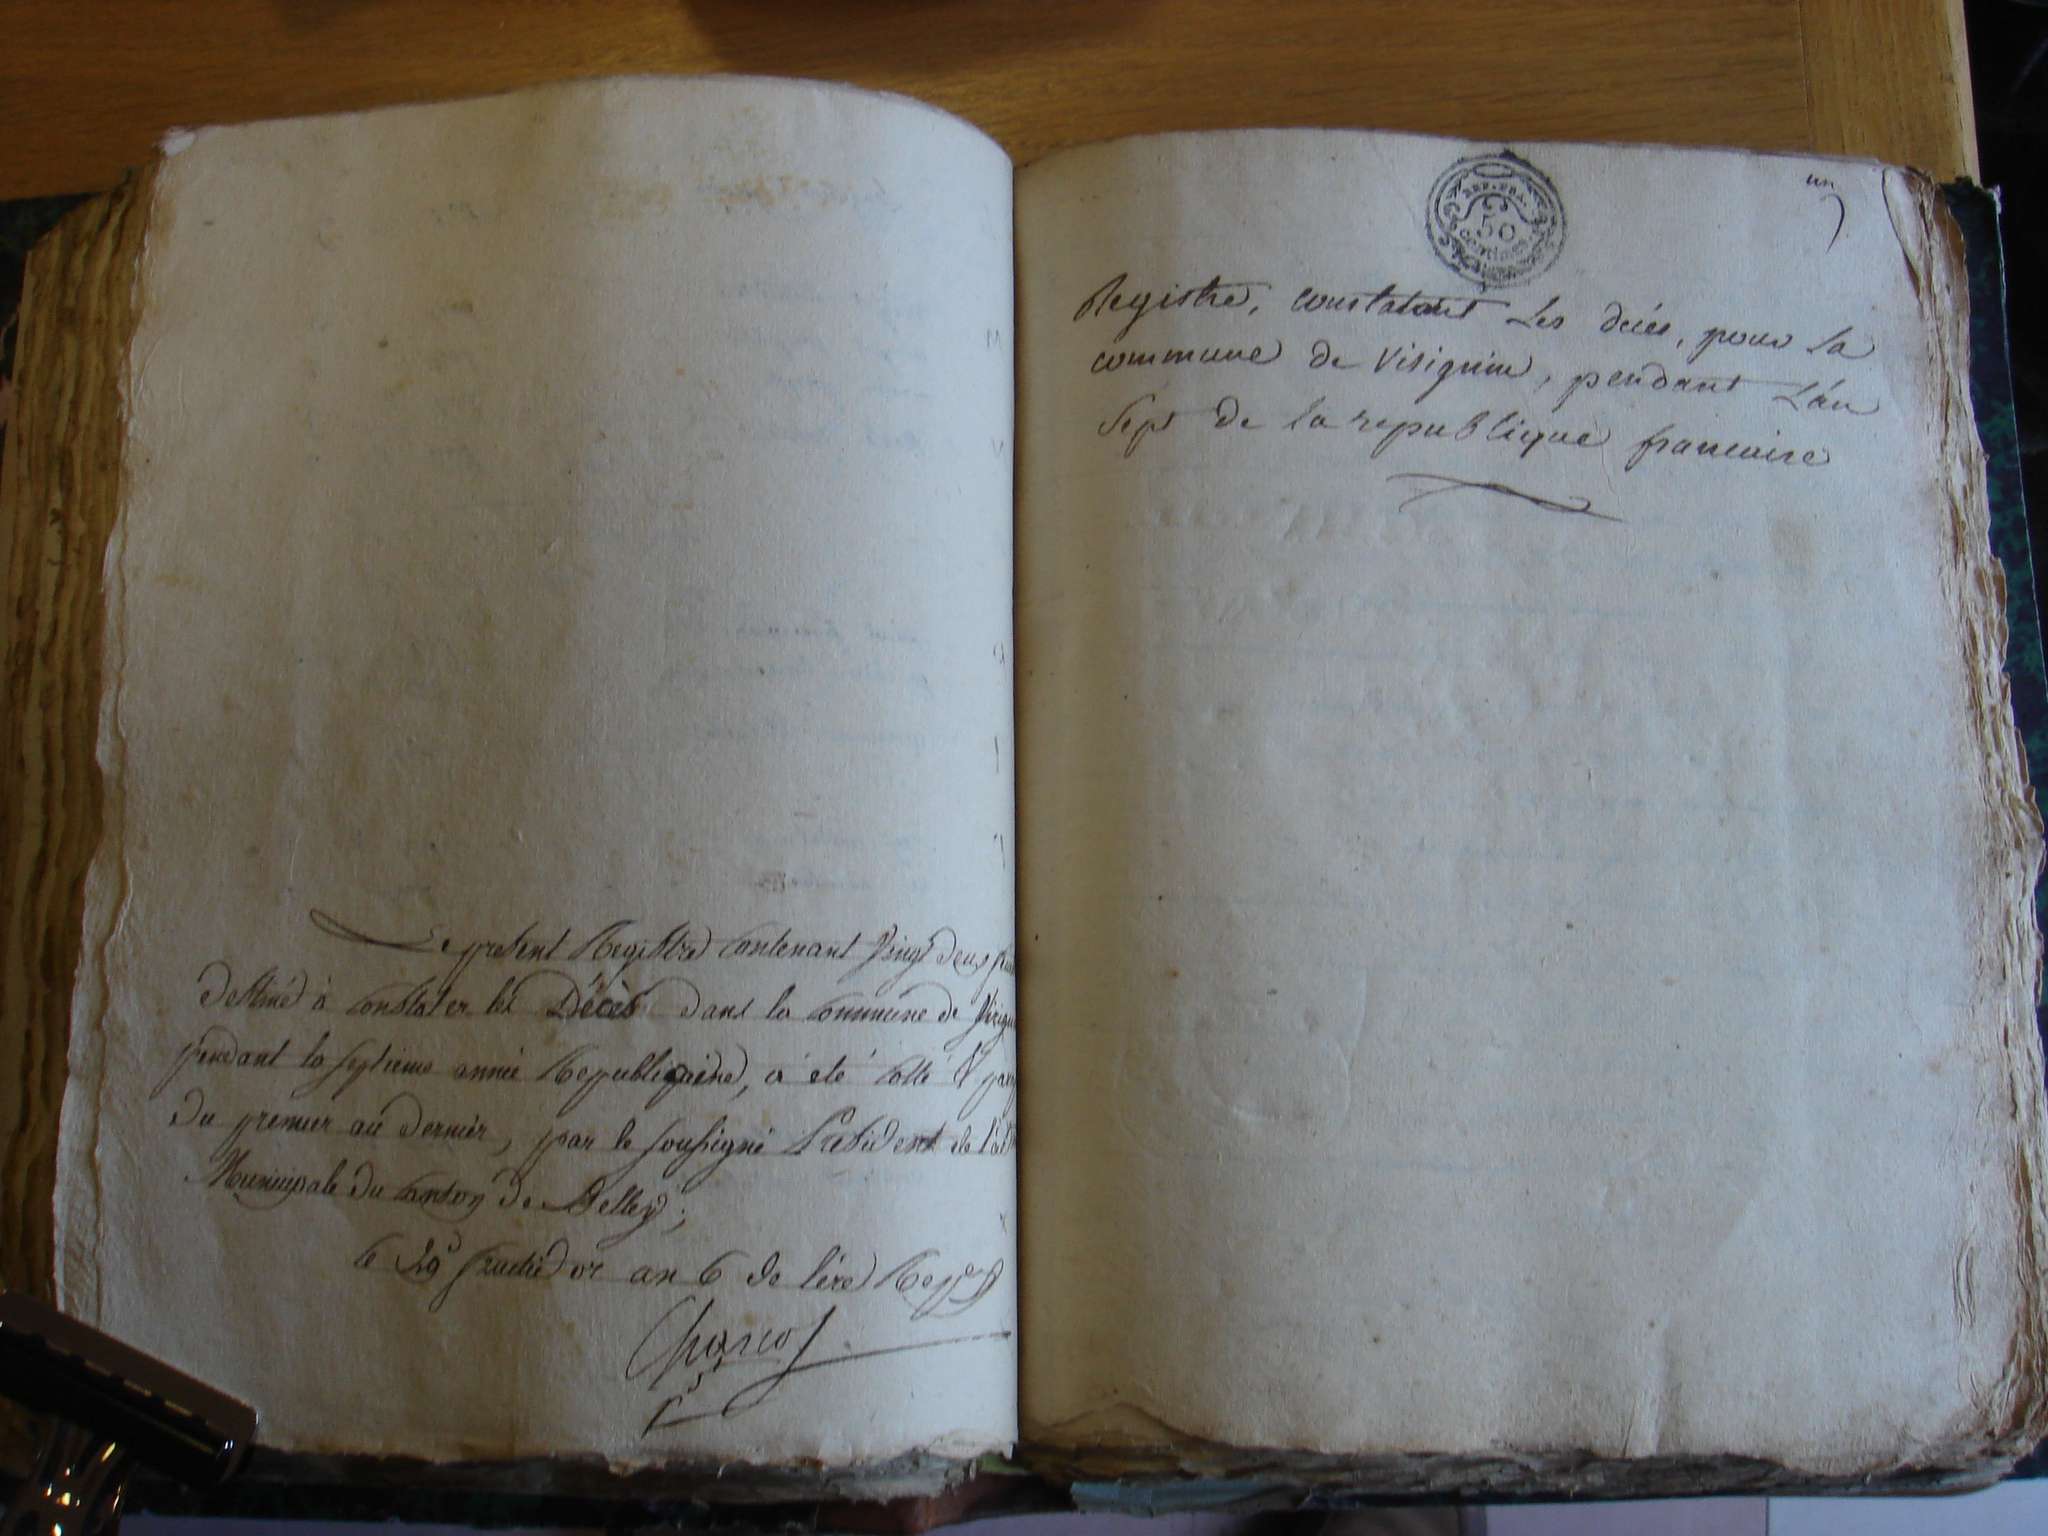 Le present Registre Contenant Vingt deux
destiné à constater les Décès dans la Commune de
pendant la septieme année Republiquaine, à été Cotté &
du premier au dernier, par le soussigné President de
Municipale du Canton de Belley;
le 29 fructidor an 6 de l'ère
un
REP. FRA.
50
centimes
Registre, constatant Les décès, pour La
commune de Virignin, pendant L'an
sept de la republique francaise